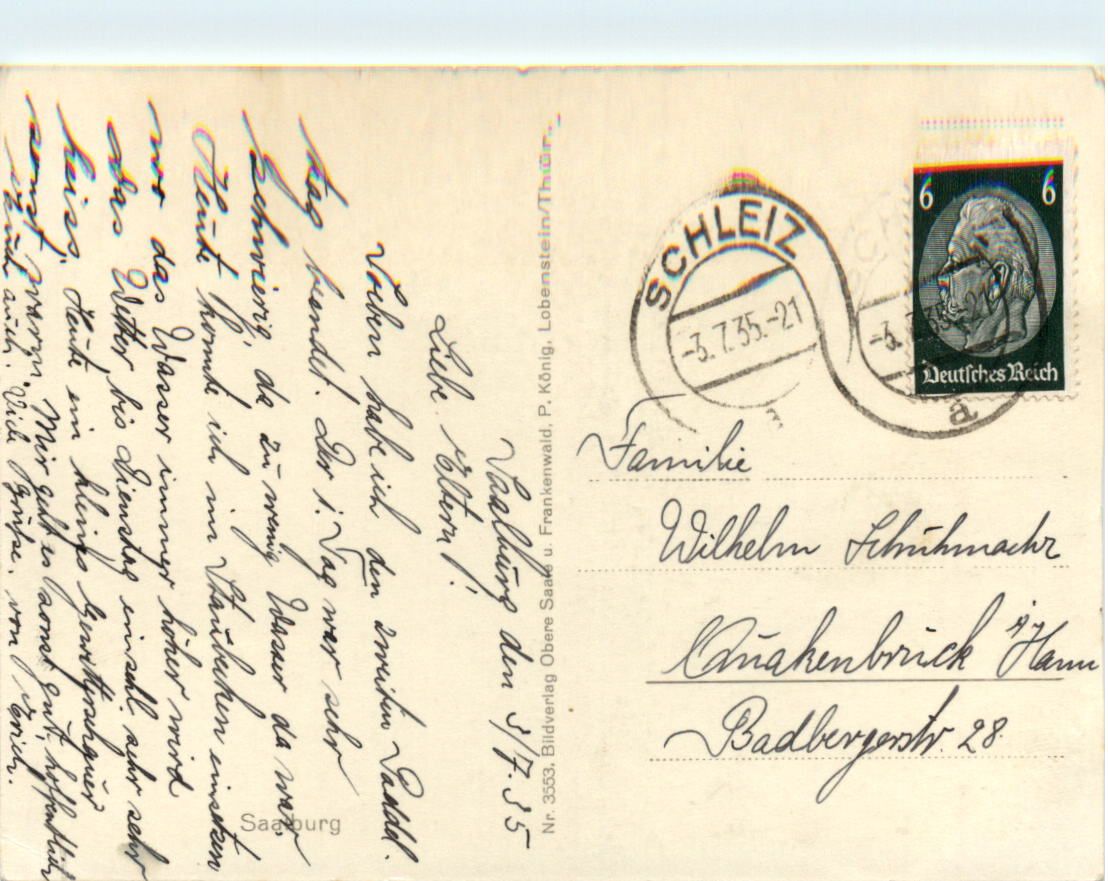 Saalburg den 3/7.35
Liebe Eltern!
Soeben habe ich den zweiten Paddl.
tag beendet. Der 1. Tag war sehr
schwierig, da zu wenig Wasser da war,
Heute konnte ich im Staubecken einsetzen
wo das Wasser immer höher wird
Das Wetter bis Dienstag einschl. sehr sehr
heiss, Heute ein kleines Gewitterschauer
sonst warm. Mir geht es sonst gut, hoffentlich
Euch auch. Viele Grüße. von Erich.
Saalburg
Nr. 3553. Bildverlag Obere Saale u. Frankenwald, P. König, Lobenstein/Thür.
SCHLEIZ
-3.7.35.-21
a
6 6
Deutsches Reich
Familie
Wilhelm Schuhmachr
Quakenbrück i/Hann
Badbergerstr. 28